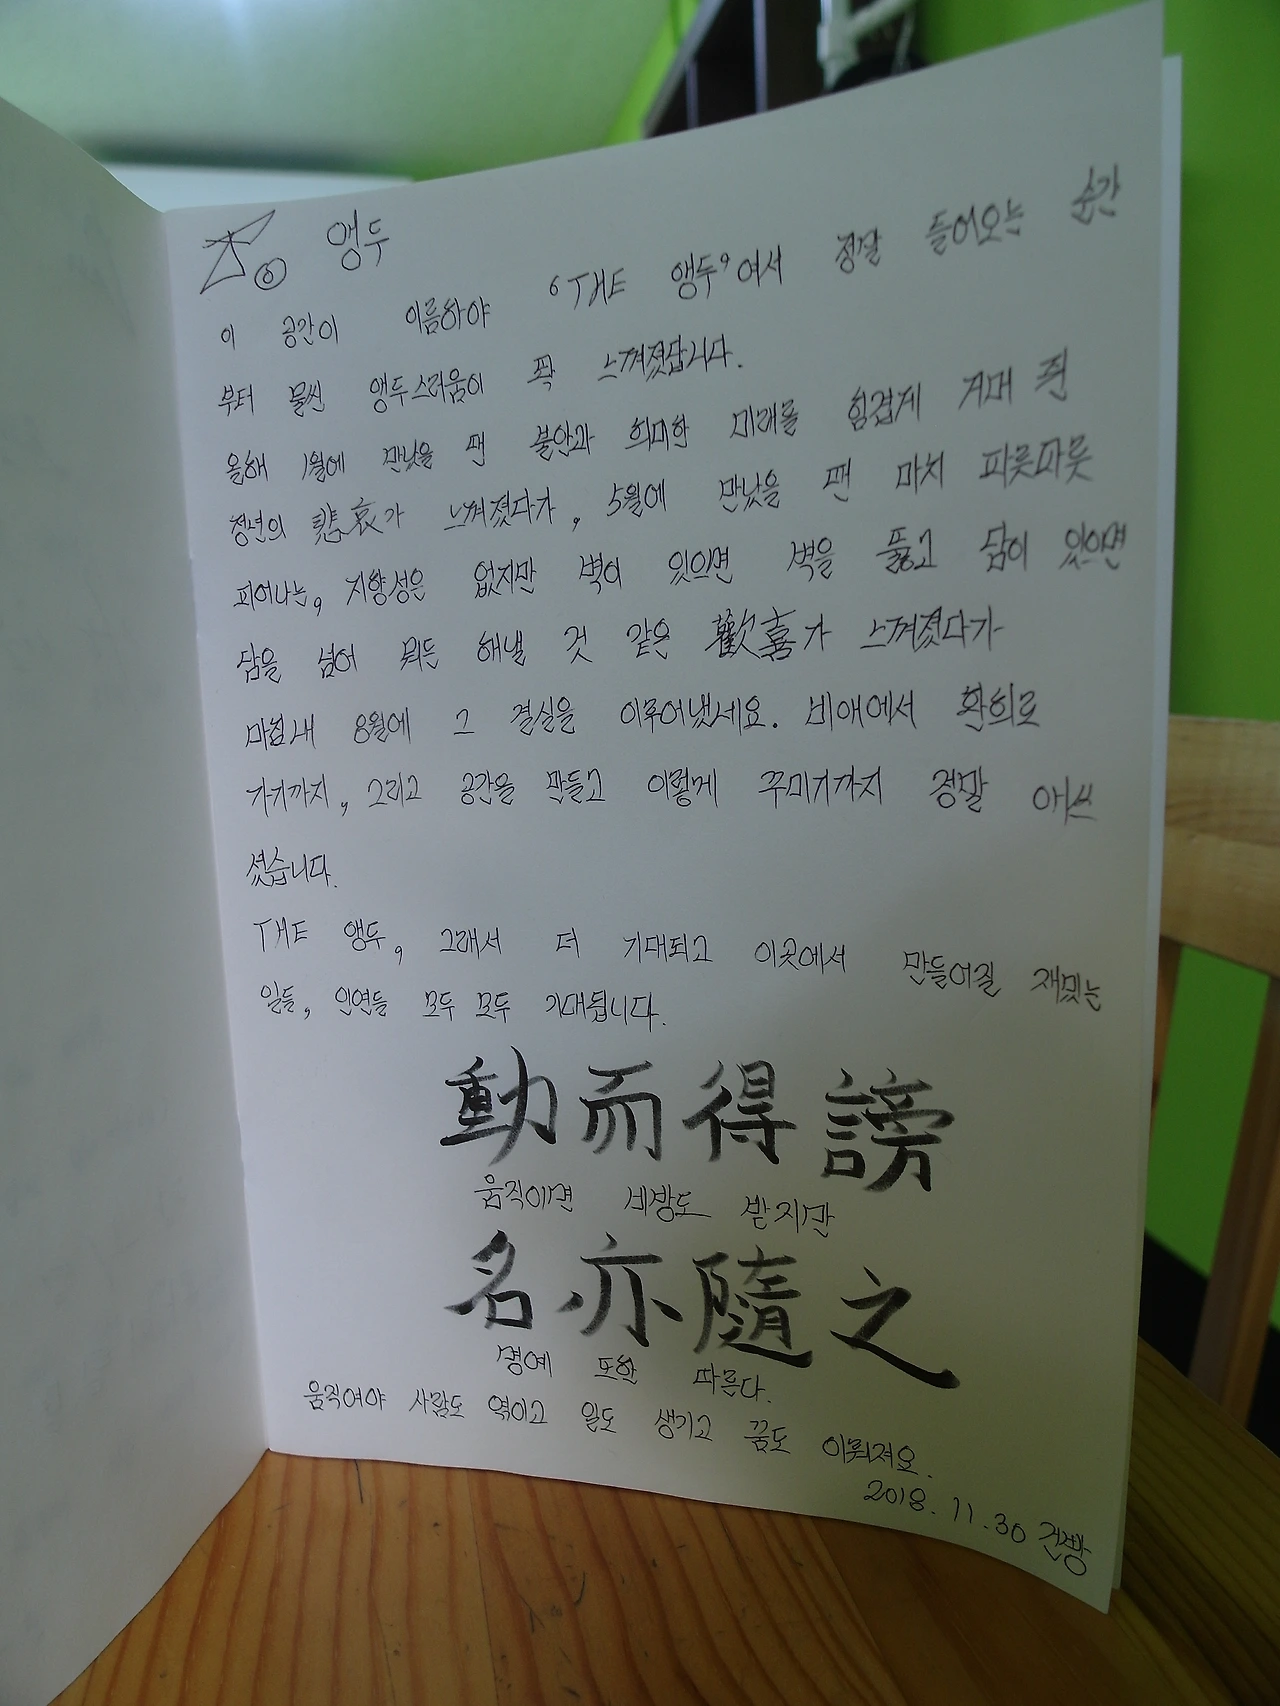 To. 앵두
이 공간이 이름하야 'THE 앵두'여서 정말 들어오는 순간
부터 물씬 앵두스러움이 팍 느껴졌답니다.
올해 1월에 만났을 땐 불안과 희미한 미래를 힘겹게 거머 쥔
청년의 悲哀가 느껴졌다가, 5월에 만났을 땐 마치 파릇파릇
피어나는, 지향성은 없지만 벽이 있으면 벽을 뚫고 담이 있으면
담을 넘어 뭐든 해낼 것 같은 歡喜가 느껴졌다가
마침내 8월에 그 결실을 이루어냈네요. 비애에서 환희로
가기까지, 그리고 공간을 만들고 이렇게 꾸미기까지 정말 애쓰
셨습니다.
THE 앵두, 그래서 더 기대되고 이곳에서 만들어질 재밌는
일들, 인연들 모두 모두 기대됩니다.
動而得謗
움직이면 비방도 받지만
名亦隨之
명예 또한 따른다.
움직여야 사람도 엮이고 일도 생기고 꿈도 이뤄져요.
2018. 11. 30 건빵